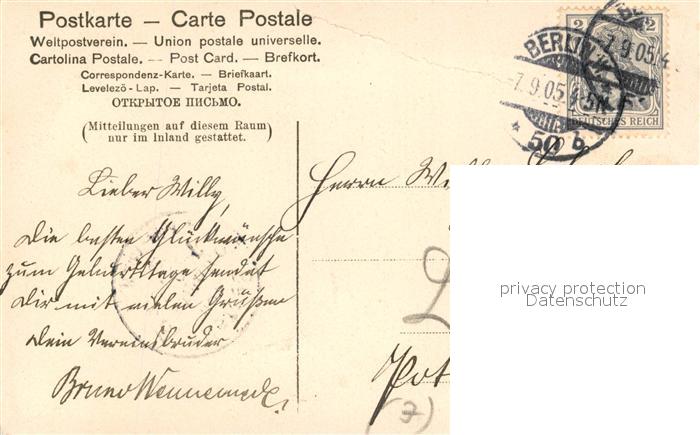 Postkarte — Carte Postale
Weltpostverein. — Union postale universelle.
Cartolina Postale. — Post Card. — Brefkort.
Correspondenz-Karte. — Briefkaart.
Levelezö-Lap. — Tarjeta Postal.
ОТКРЫТОЕ ПИСЬМО.
(Mitteilungen auf diesem Raum)
nur im Inland gestattet.)
BERLIN
7.9.05
50 b
2 2
7.9.05
DEUTSCHES REICH
Lieber Willy,
Die besten Glückwünsche
zum Geburtstage sendet
Dir mit vielen Grüßen
Dein Vereinsbruder
Bruno
Herrn
Pot
(7)
privacy protection
Datenschutz